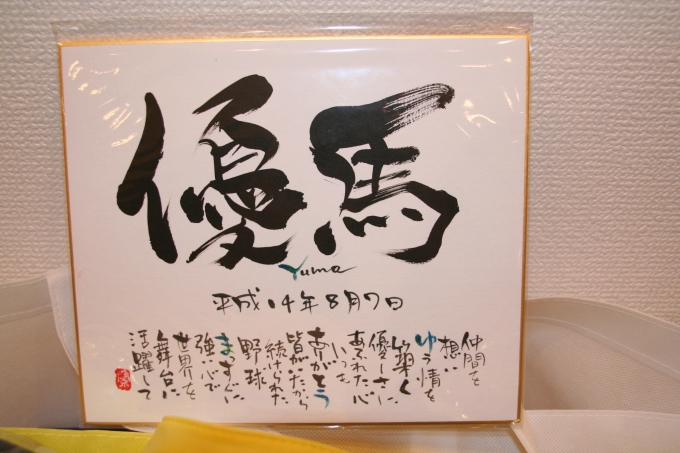 優馬
Yuma
平成14年8月7日
仲間を
想い
ゆう情を
築く
優しさに
あふれた心
いつも
ありがとう
皆がいたから
続けられた
野球
まっすぐに
強い心で
世界を
舞台に
活躍して